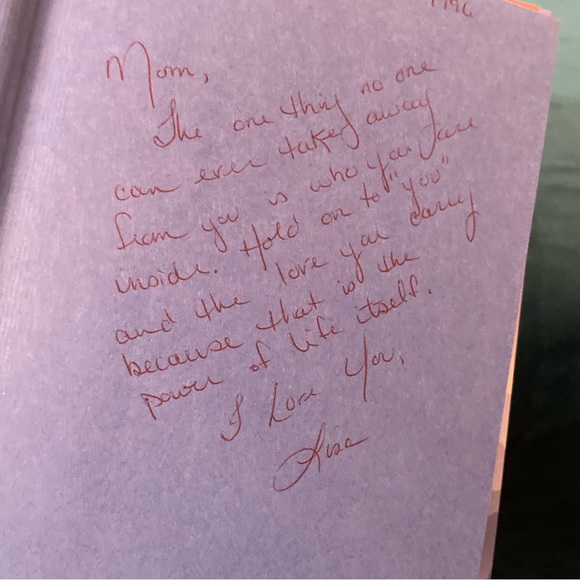 1996
Mom,
The one thing no one
can ever take away
from you is who you are
inside. Hold on to "you"
and the love you carry
because that is the
power of life itself.
I Love You,
Lisa